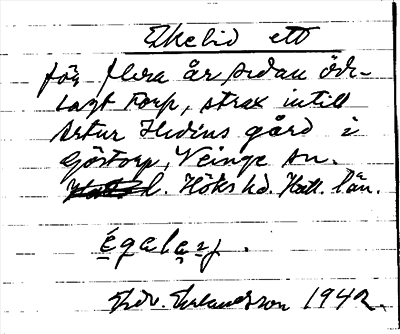 Ekelid ett
för flera år sedan öde-
lagt torp, strax intill
Artur Hedins gård i
Göstorp, Veinge sn.
Höks hd. Hall. län.
Edv. Erlandsson 1942.